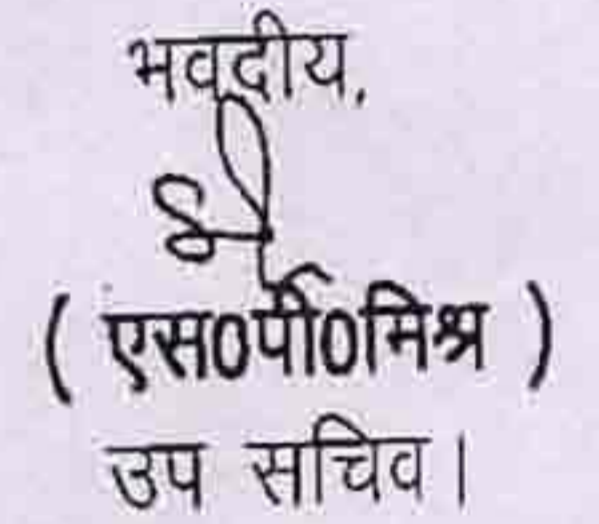 भवदीय,
( एस0पी0मिश्र )
उप सचिव।